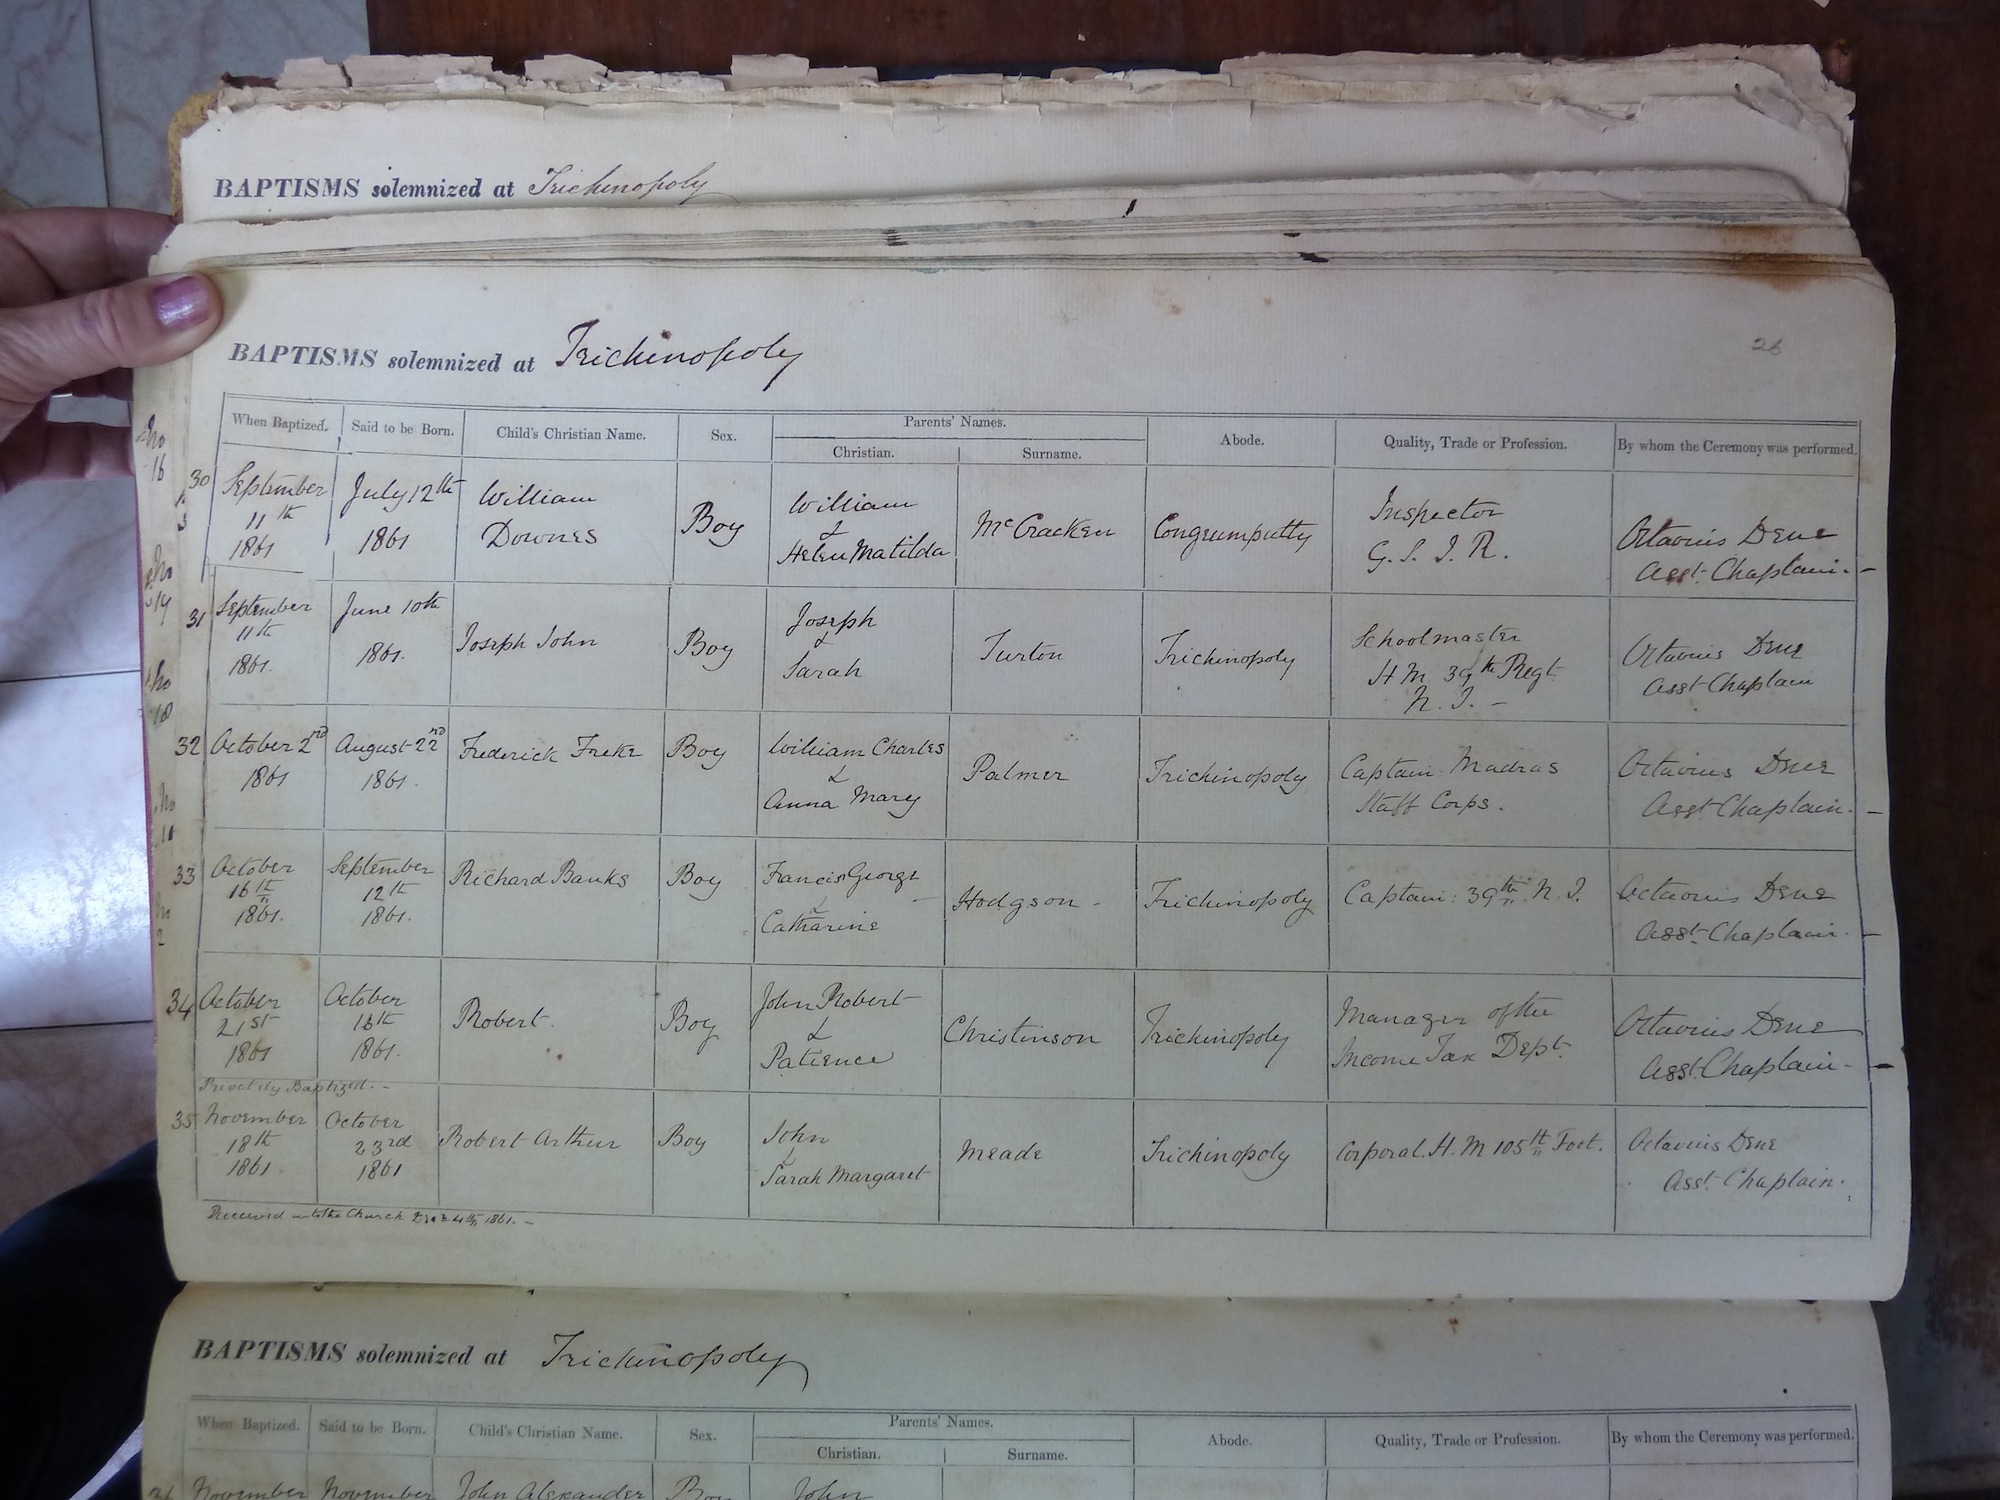 BAPTISMS solemnized at Trichinopoly
BAPTISMS solemnized at Trichinopoly
26
When Baptized. Said to be Born. Child's Christian Name. Sex. Parents' Names. Christian. Surname. Abode. Quality, Trade or Profession. By whom the Ceremony was performed.
30
September
11th
1861
July 12th
1861
William
Downes
Boy
William
&
Helen Matilda
McCracken
Congrumputty
Inspector
G. S. I. R.
Octavius Dene
Asst. Chaplain.-
31
September
11th
1861.
June 10th
1861.
Joseph John
Boy
Joseph
&
Sarah
Turton
Trichinopoly
Schoolmaster
H M 39th Regt
N. I. -
Octavius Dene
Asst Chaplain
32
October 2nd
1861
August 22nd
1861.
Frederick Freke
Boy
William Charles
&
Anna Mary
Palmer
Trichinopoly
Captain: Madras
Staff Corps.
Octavius Dene
Asst Chaplain. -
33
October
16th
1861.
September
12th
1861.
Richard Banks
Boy
Francis George
&
Catharine
Hodgson -
Trichinopoly
Captain: 39th N. I.
Octavius Dene
Asst. Chaplain. -
34
October
21st
1861
October
16th
1861.
Robert.
Boy
John Robert
&
Patience
Christinson
Trichinopoly
Manager of the
Income Tax Dept.
Octavius Dene
Asst. Chaplain - -
Privately Baptized. -
35
November
18th
1861
October
23rd
1861
Robert Arthur
Boy
John
&
Sarah Margaret
Meade
Trichinopoly
Corporal. H. M 105th Foot.
Octavius Dene
Asst. Chaplain.
Received into the Church Dec 4th, 1861. -
BAPTISMS solemnized at Trichinopoly
When Baptized. Said to be Born. Child's Christian Name. Sex. Parents' Names. Christian. Surname. Abode. Quality, Trade or Profession. By whom the Ceremony was performed.
36
November
November
John Alexander
Boy
John